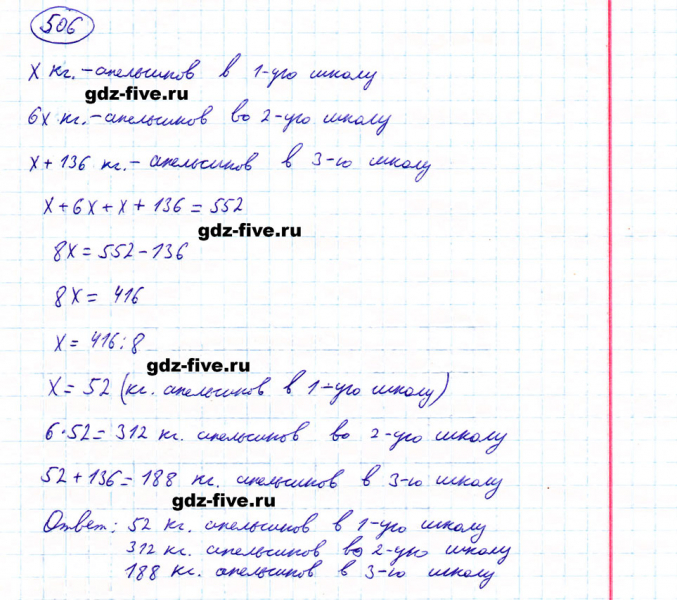 506
x кг. - апельсинов в 1-ую школу
gdz-five.ru
6x кг. - апельсинов во 2-ую школу
x + 136 кг. - апельсинов в 3-ю школу
x + 6x + x + 136 = 552
gdz-five.ru
8x = 552 - 136
8x = 416
x = 416 : 8
gdz-five.ru
x = 52 (кг. апельсинов в 1-ую школу)
6 · 52 = 312 кг. апельсинов во 2-ую школу
52 + 136 = 188 кг. апельсинов в 3-ю школу
gdz-five.ru
Ответ: 52 кг. апельсинов в 1-ую школу
312 кг. апельсинов во 2-ую школу
188 кг. апельсинов в 3-ю школу